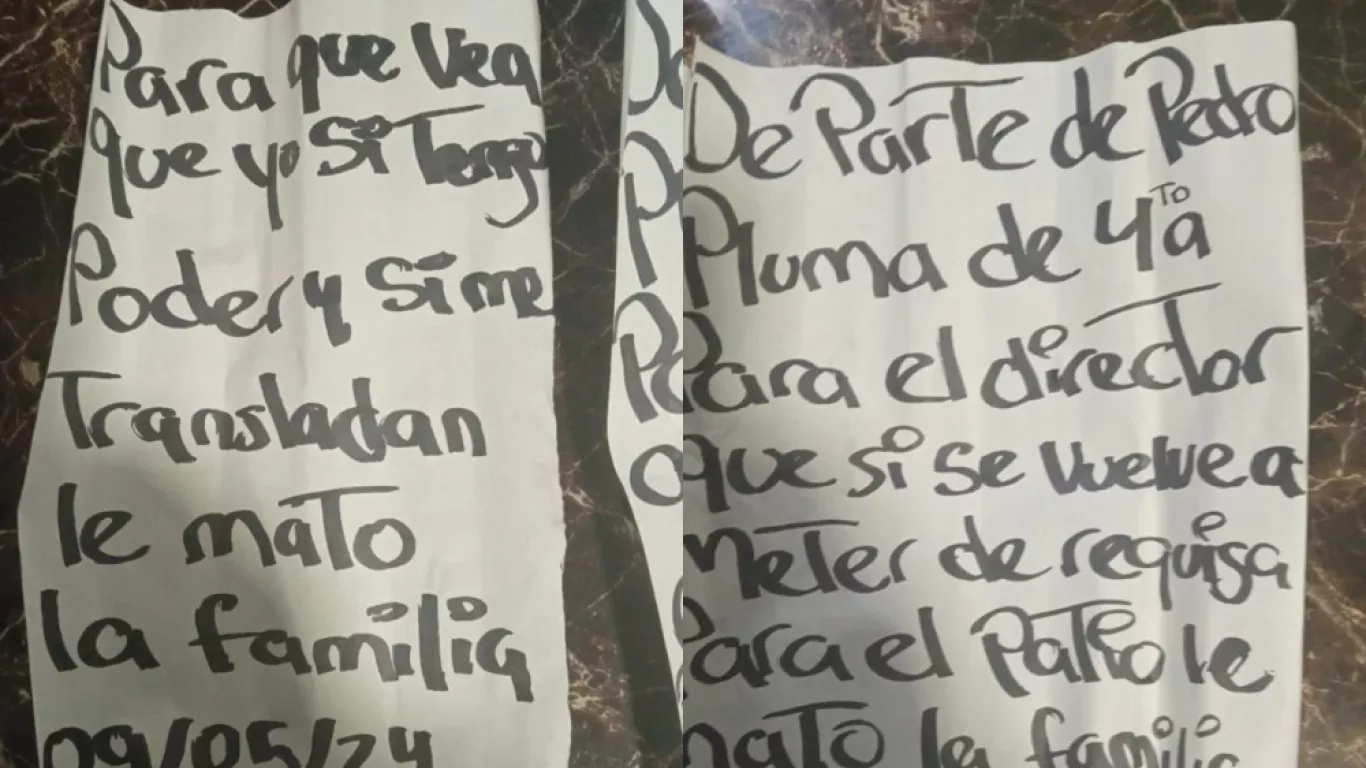 Para que vea
que yo si Tengo
Poder y si me
Transladan
le mato
la familia
09/05/24
De Parte de Pedro
Pluma de 4 To a
Para el director
que si se vuelve a
meter de requisa
Para el Patio le
mato la familia